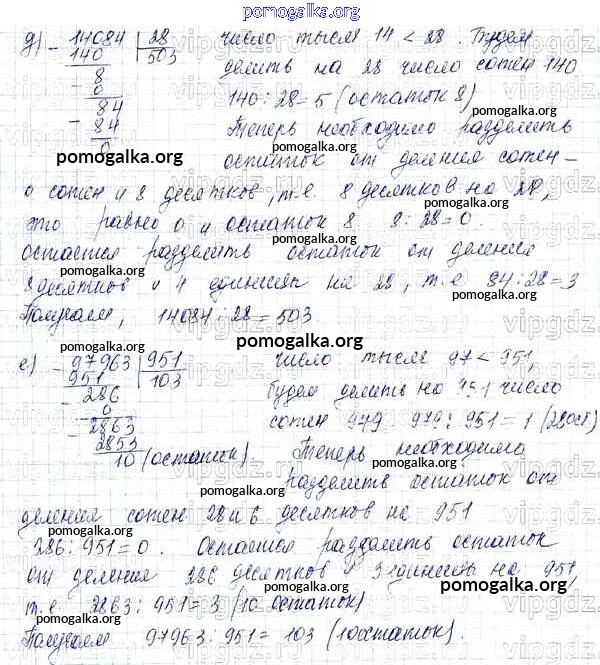 pomogalka.org
д) 14084 | 28 число тысяч 14 < 28. Будем
140 503 делить на 28 число сотен 140
8
- 0 140 : 28 = 5 (остаток 8)
84
- 84 Теперь необходимо разделить
0
pomogalka.org остаток от деления сотен –
0 сотен и 8 десятков, т.е. 8 десятков на 28,
это равно 0 и остаток 8 8 : 28 = 0.
остается разделить остаток от деления
8 десятков и 4 единицы на 28, т.е 84 : 28 = 3
Получаем, 14084 : 28 = 503.
pomogalka.org
е) - 97963 | 951 число тысяч 97 < 951,
951 103 будем делить на 951 число
- 286
0 сотен 979 979 : 951 = 1 (28 ост)
- 2863
2853 Теперь необходимо
10 (остаток).
разделить остаток от
деления сотен 28 и 6 десятков на 951
286 : 951 = 0. Остается разделить остаток
от деления 286 десятков и 3 единицы на 951,
т.е 2863 : 951 = 3 (10 остаток)
Получаем 97963 : 951 = 103 (10 остаток).
pomogalka.org